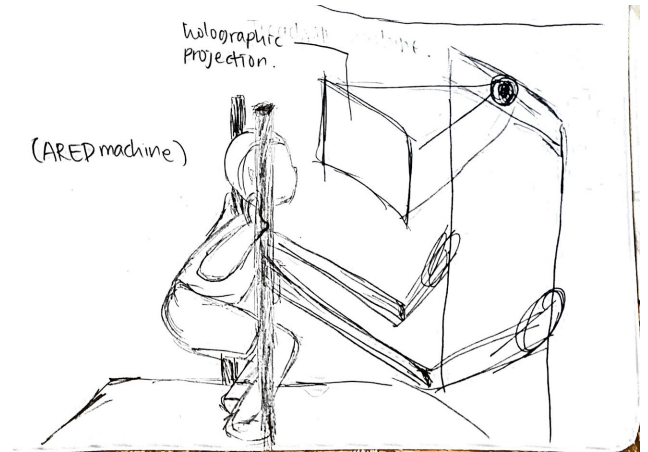 holographic
projection.
(ARED machine)